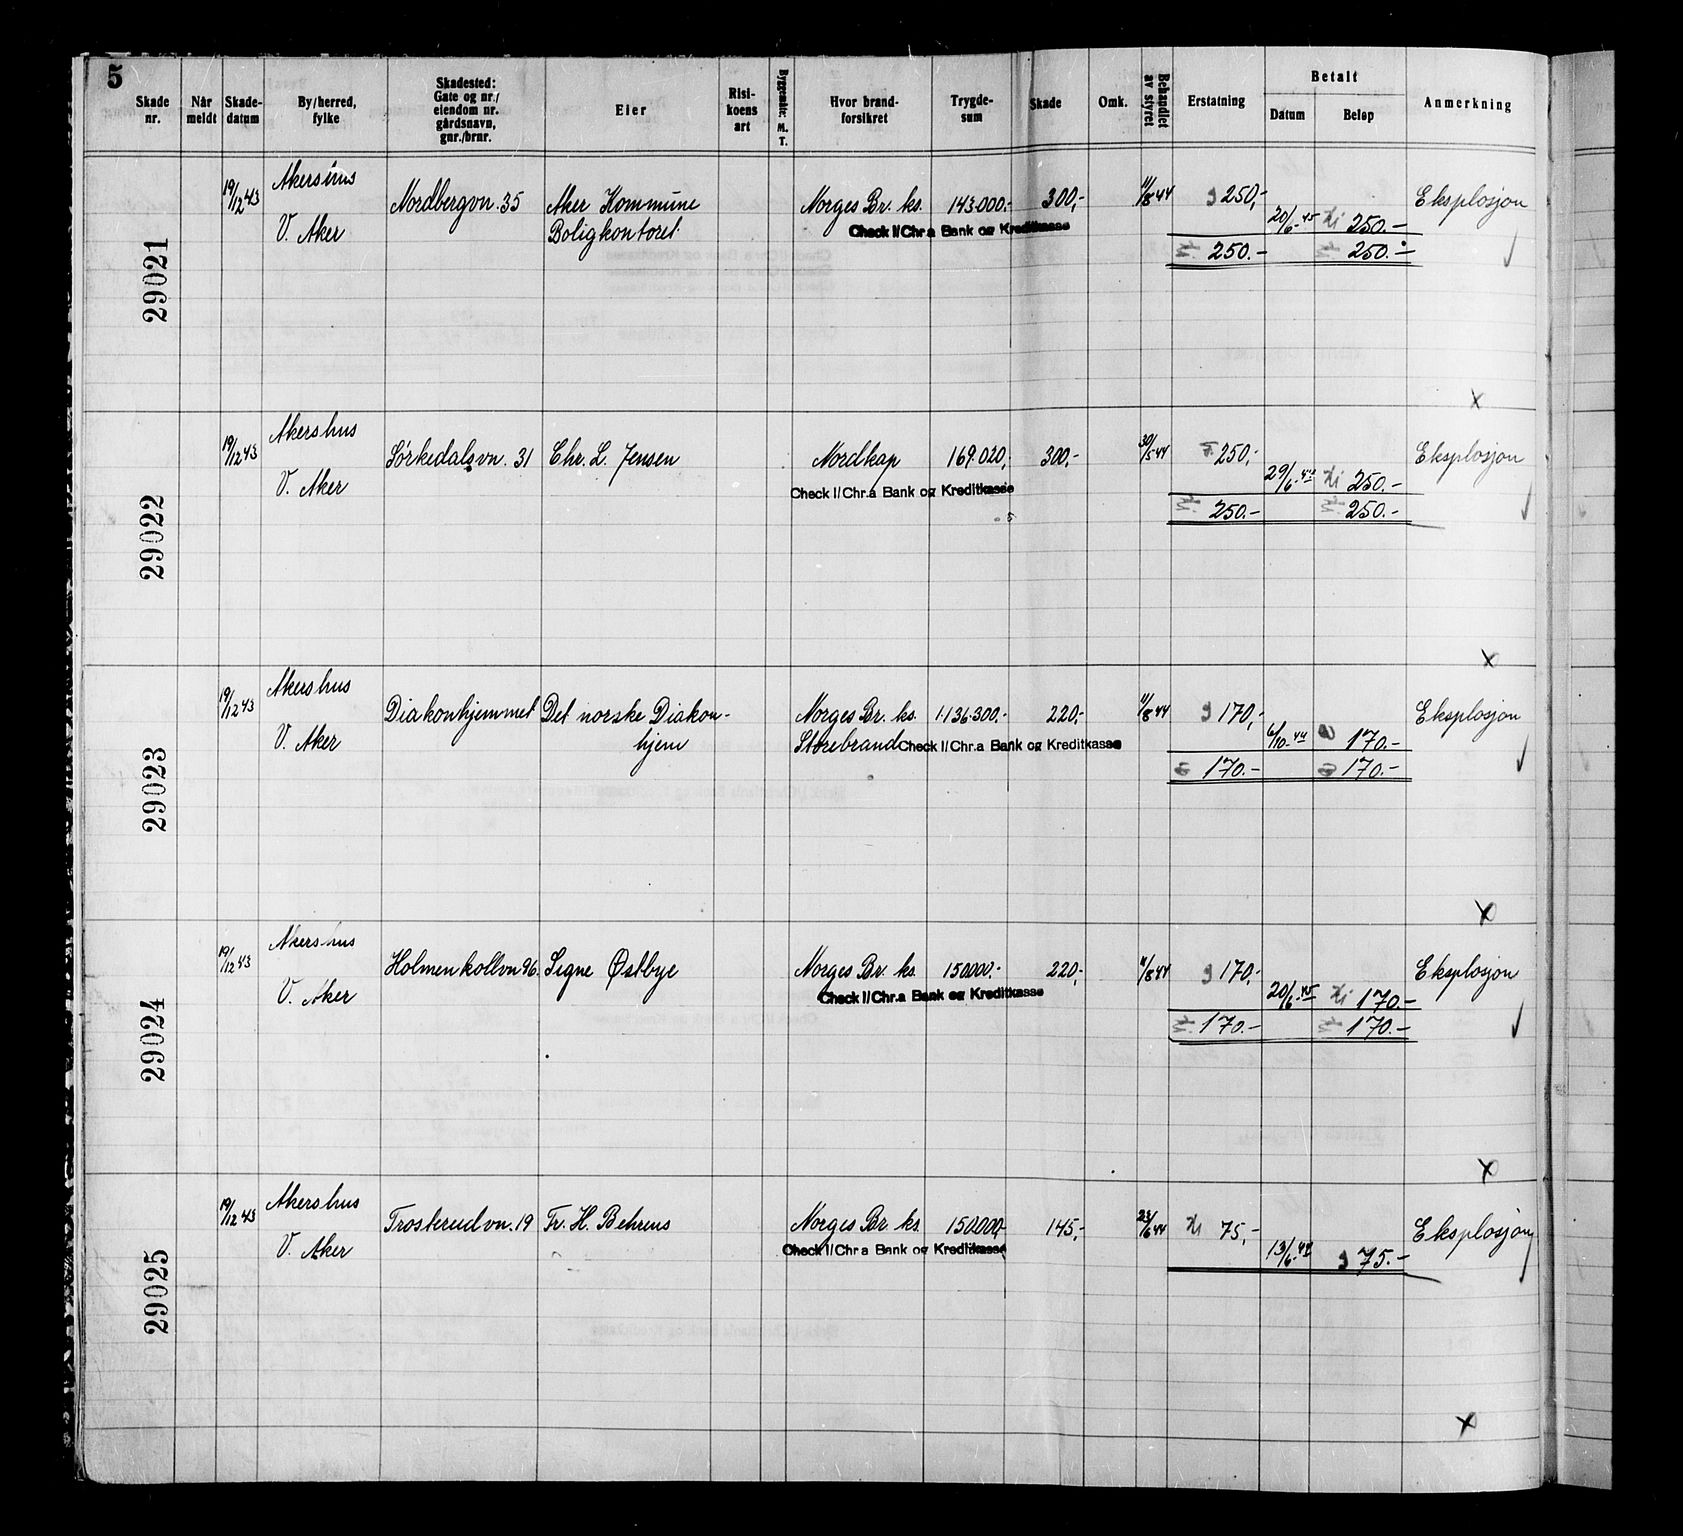 5
Skade nr.
Når meldt
Skade-datum
By/herred, fylke
Skadested: Gate og nr./ eiendom nr. gårdsnavn, gnr./brnr.
Eier
Risi-koens art
Byggemåte: M. T.
Hvor brand-forsikret
Trygde-sum
Skade
Omk.
Behandlet av styret
Erstatning
Betalt
Datum
Beløp
Anmerkning
29021
19/12 43 Akershus Nordbergvn. 35 Aker Kommune Norges Br. ks. 143.000.- 300,- 11/8 44 250,- Eksplosjon
V. Aker Boligkontoret Check I/Chr.a Bank og Kreditkasse 20/6-45 250.-
250.- 250.-
x
29022
19/12 43 Akershus Sørkedalsvn. 31 Chr. L. Jensen Nordkap 169.020,- 300,- 30/5 44 250,- Eksplosjon
V. Aker Check I/Chr.a Bank og Kreditkasse 29/6-44 250.-
250.- 250.-
x
29023
19/12 43 Akershus Diakonhjemmet Det norske Diakon- Norges Br. ks. 1.136.300,- 220,- 11/8 44 170,- Eksplosjon
V. Aker hjem Storebrand Check I/Chr.a Bank og Kreditkasse 6/10-44 170.-
170.- 170.-
x
29024
19/12 43 Akershus Holmenkollvn 96. Signe Østbye Norges Br. ks. 150.000.- 220,- 11/8 44 170,- Eksplosjon
V. Aker Check I/Chr.a Bank og Kreditkasse 20/6-45 170.-
170.- 170.-
x
29025
19/12 43 Akershus Trosterudvn. 19 Fr. H. Behrens Norges Br. ks. 150.000,- 145,- 23/6 44 75,- Eksplosjon
V. Aker Check I/Chr.a Bank og Kreditkasse 13/6-44 75.-
x